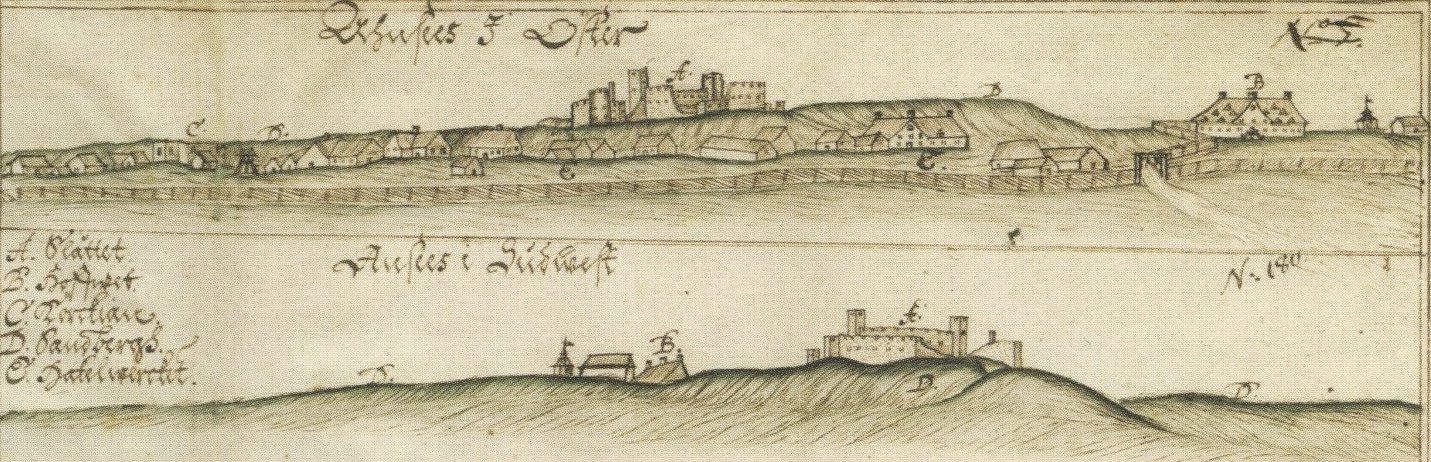 Ahusees I Oster
A.
B
B
C.
D.
E
E.
A. Slåttet.
B. Hoffwet
C. Kÿrckian.
D. Sandbergh.
E. Hakelwerckit.
Ausees i Sudwest
N: 180
A.
B.
D.
D.
D.